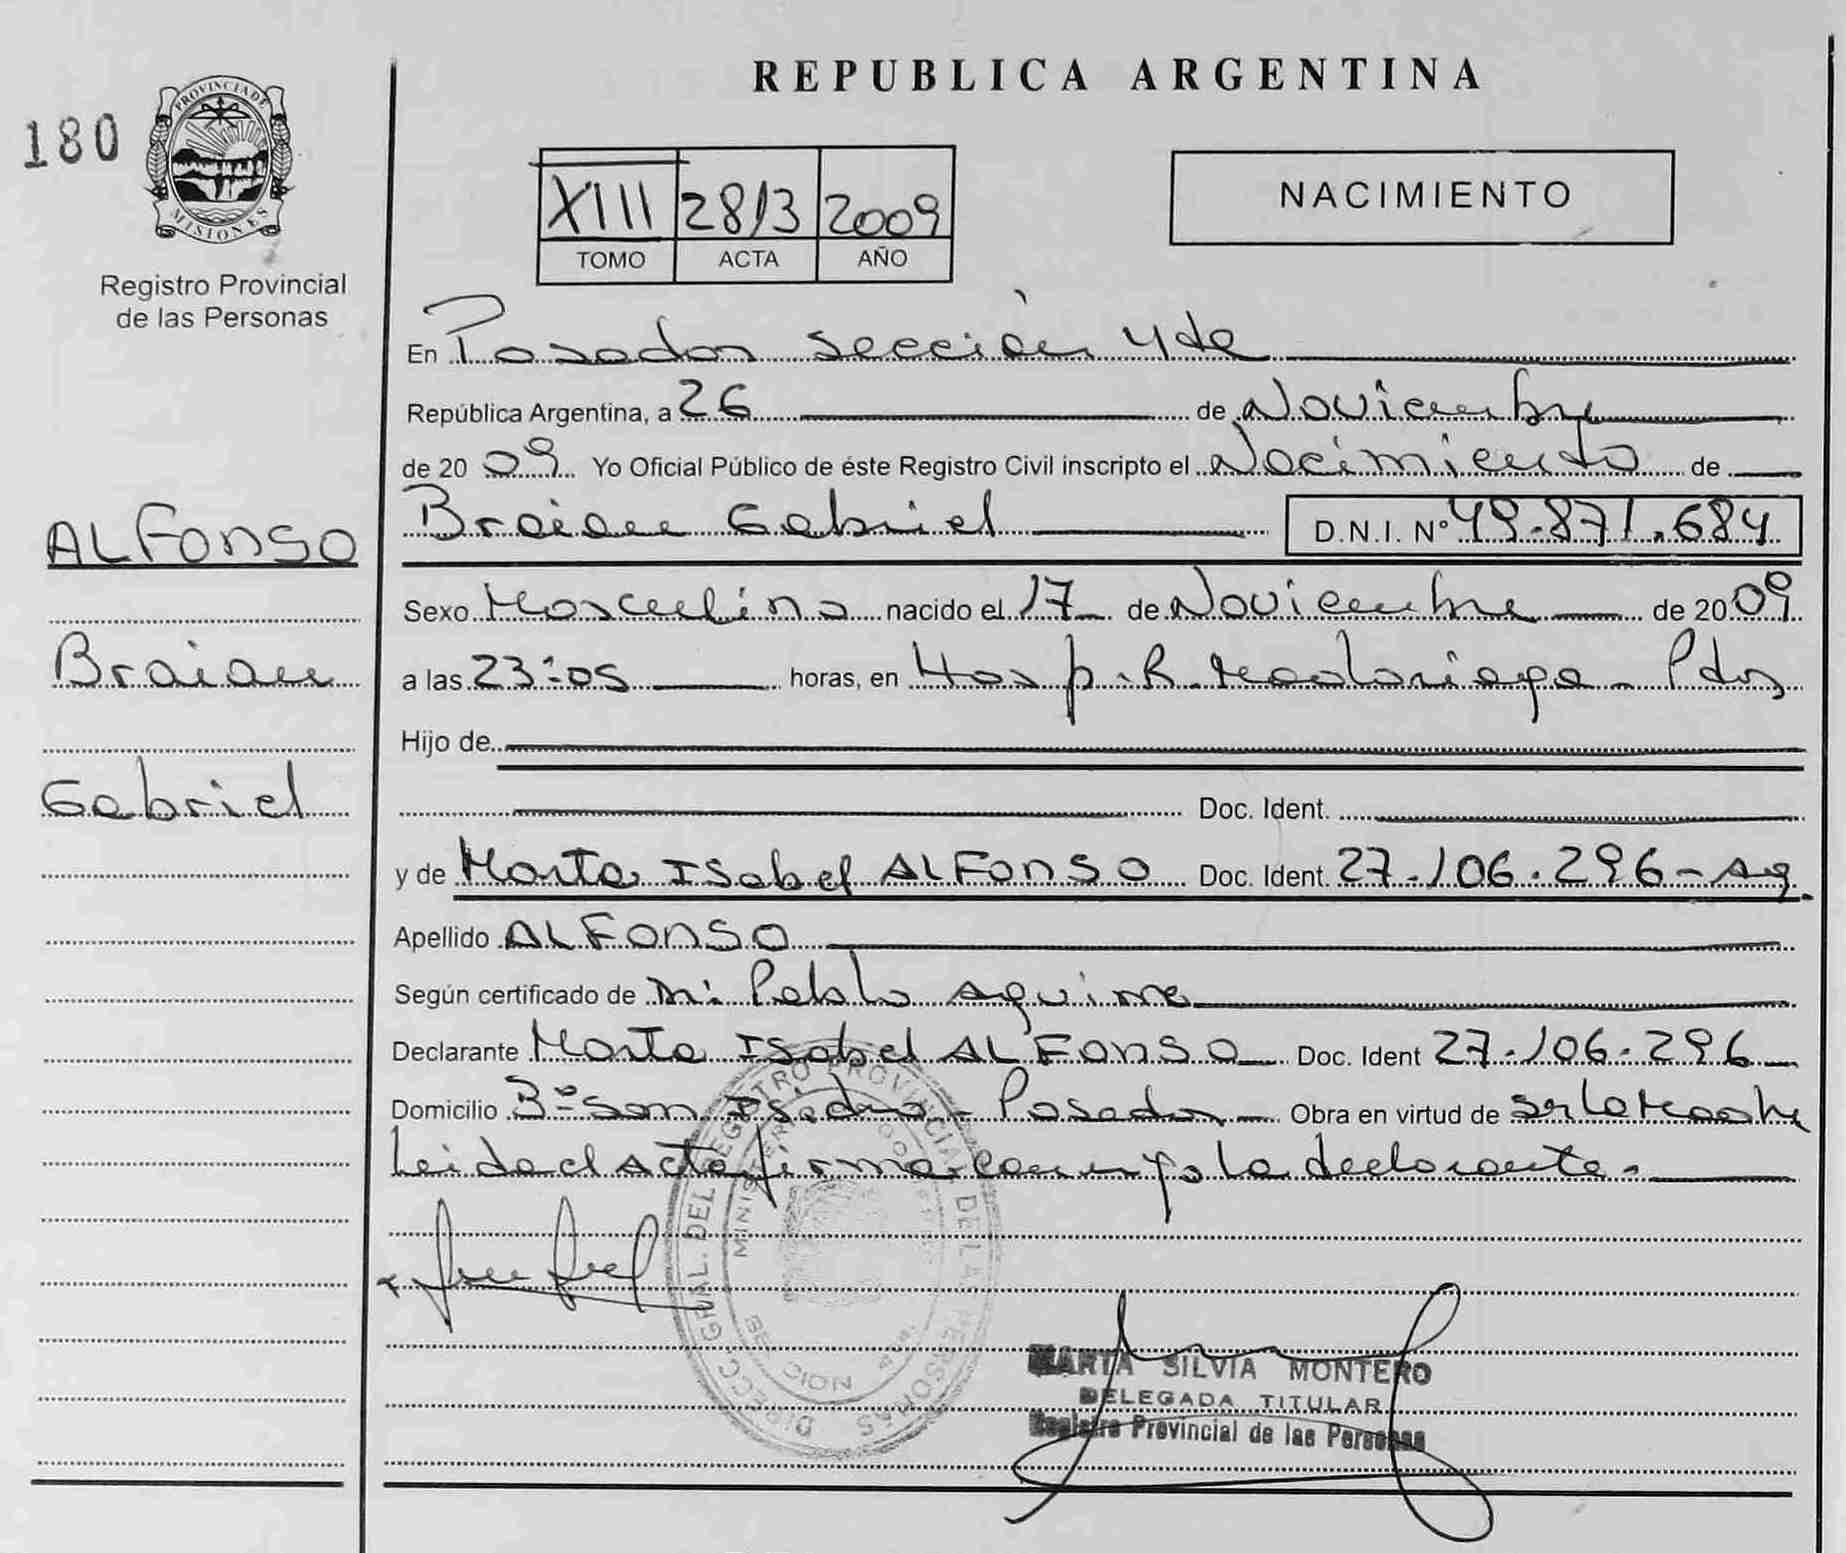 REPUBLICA ARGENTINA
180
PROVINCIA DE
MISIONES
Registro Provincial
de las Personas
XIII 2813 2009
TOMO ACTA AÑO
NACIMIENTO
En Posadas sección 4ta
República Argentina, a 26 de Noviembre
de 2009 Yo Oficial Público de éste Registro Civil inscripto el Nacimiento de
Braian Gabriel D.N.I. Nº 49.871.684
ALFONSO
Braian
Gabriel
Sexo Masculino nacido el 17 de Noviembre de 2009
a las 23:05 horas, en Hosp. R. Madariaga - Pdas
Hijo de
Doc. Ident.
y de Marta Isabel ALFONSO Doc. Ident. 27.106.296 - Ag.
Apellido ALFONSO
Según certificado de Pablo Aguirre
Declarante Marta Isabel ALFONSO Doc. Ident 27.106.296
Domicilio Bº San Isidro - Posadas Obra en virtud de ser la Madre
Leida el Acta firma con yo la declarante.
DIRECC. GRAL. DEL REGISTRO PROVINCIAL DE LAS PERSONAS
MARTA SILVIA MONTERO
DELEGADA TITULAR
Registro Provincial de las Personas